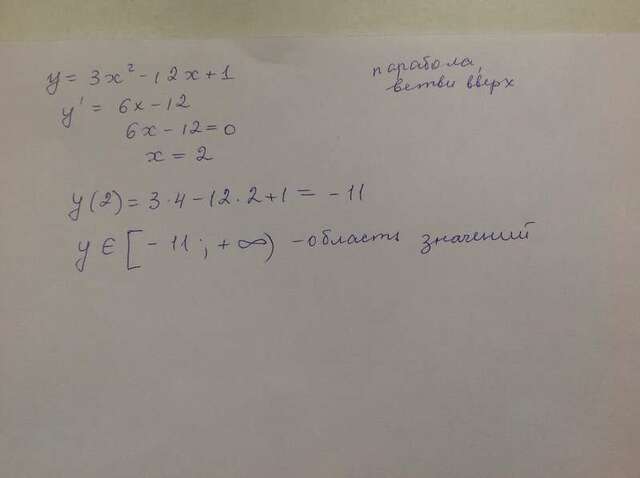 y = 3x² - 12x + 1
парабола,
ветви вверх
y' = 6x - 12
6x - 12 = 0
x = 2
y(2) = 3·4 - 12·2 + 1 = -11
y ∈ [-11; +∞) - область значений